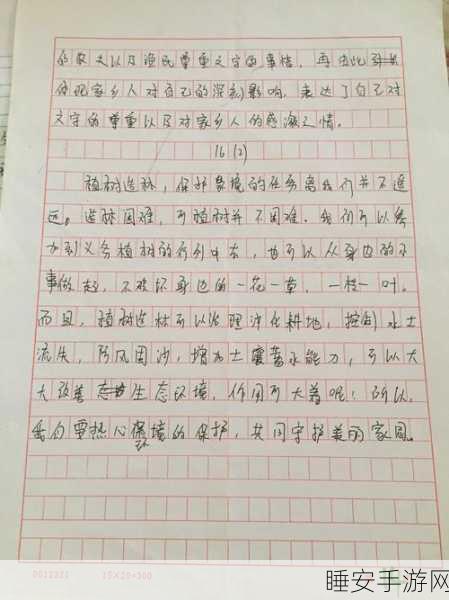 的散文以及渔民尊重文字的事情，再由此
体现家乡人对自己的深刻影响，表达了自己对
文字的尊重以及对家乡人的感激之情。
16(2)
植树造林，保护环境的任务离我们并不遥
远。造林困难，可植树并不困难。我们可以参
加到义务植树的行列中去，也可以从身边的小
事做起，不破坏身边的一花一草，一枝一叶。
而且，植树造林可以治理沙化耕地，控制水土
流失，防风固沙，增加土壤蓄水能力，可以大
大改善生态环境，作用可大着呢！所以，
要热心环境的保护，共同守护美丽家园。
0012321 15×20=300
睡安手游网